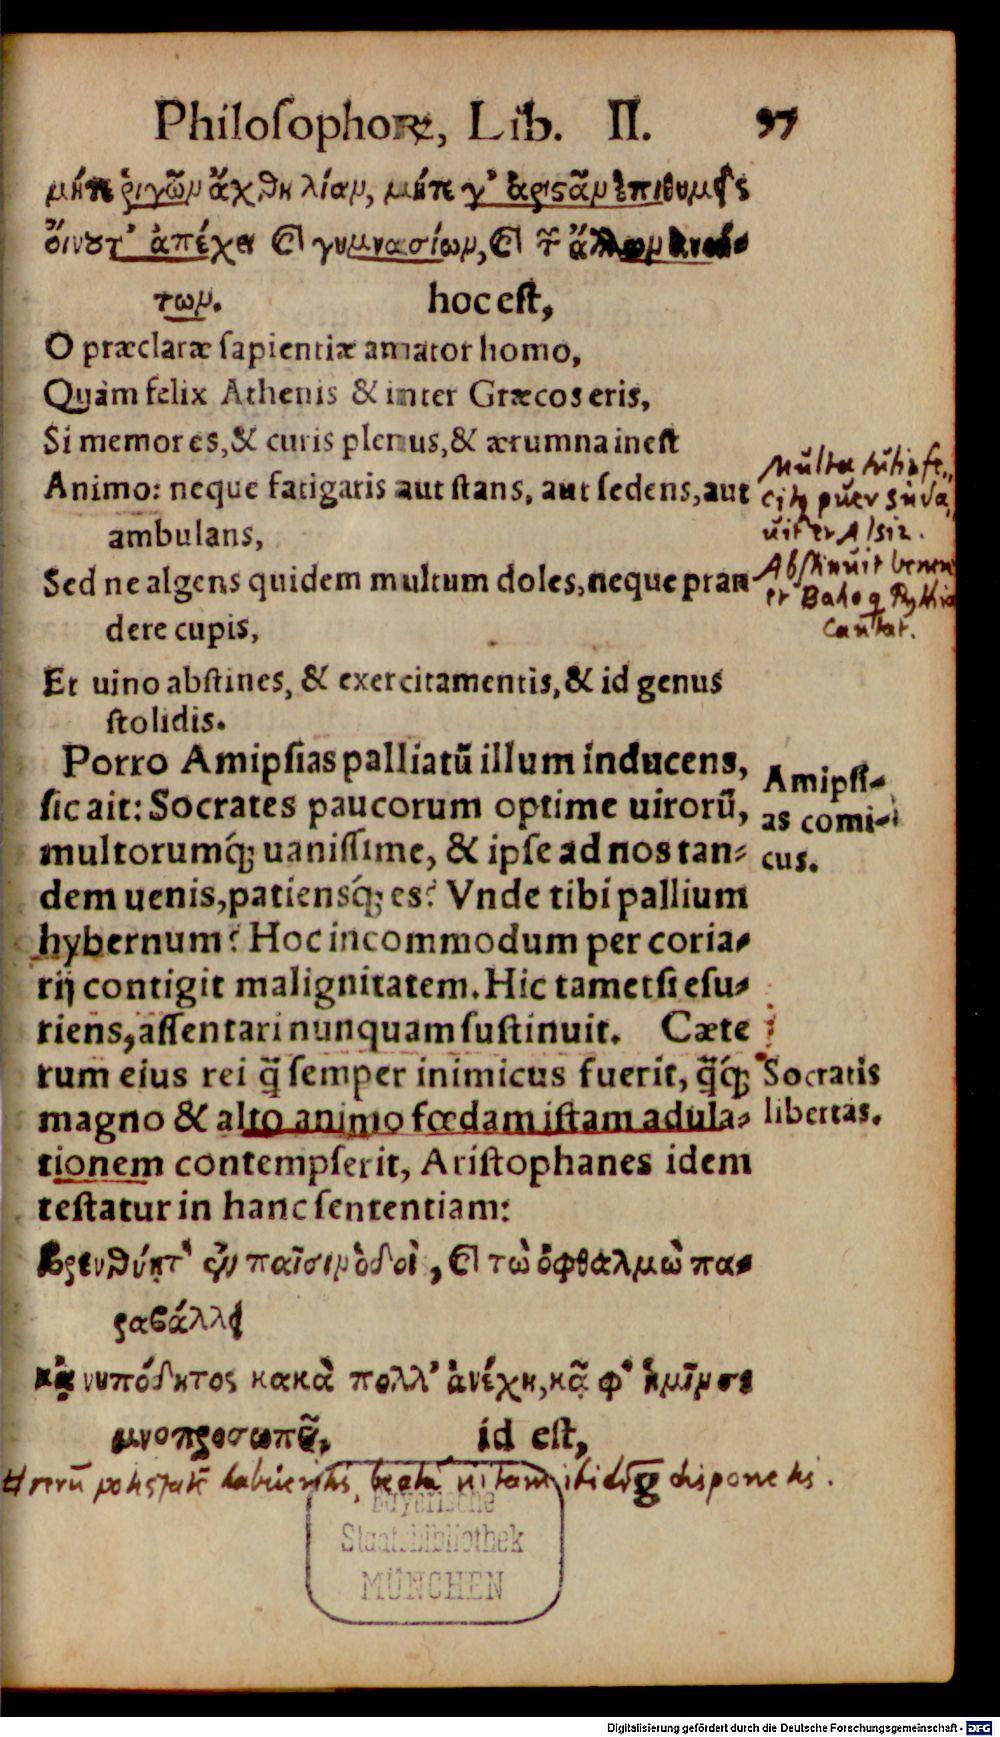 Philosophoꝝ, Lib. II. 97
μήτε ῥιγῶν ἄχθη λίαν, μήτε γ' ἀριςᾶν ἐπιθυμεῖς
ὄινου τ' ἀπέχει καὶ γυμνασίων, καὶ τῶν ἄλλων ἀνοή-
των. hoc est,
O præclaræ sapientiæ amator homo,
Quàm felix Athenis & inter Græcos eris,
Si memor es, & curis plenus, & ærumna inest
Animo: neque fatigaris aut stans, aut sedens, aut
ambulans,
Sed ne algens quidem multum doles, neque pran
dere cupis,
Et uino abstines, & exercitamentis, & id genus
stolidis.
Multa tulit fe-
citq puer suda
uit et Alsit.
Abstinuit venere
et Baho q Pythia
Cantat.
Porro Amipsias palliatũ illum inducens,
sic ait: Socrates paucorum optime uirorũ,
multorumq́; uanissime, & ipse ad nos tan-
dem uenis, patiensq́; es? Vnde tibi pallium
hybernum? Hoc incommodum per coria-
rij contigit malignitatem. Hic tametsi esu-
riens, assentari nunquam sustinuit. Cæte
rum eius rei q̃ semper inimicus fuerit, q̃q́;
magno & alto animo fœdam istam adula-
tionem contempserit, Aristophanes idem
testatur in hanc sententiam:
Amipsi-
as comi-
cus.
Socratis
libertas.
Βρενθύετ' ἐν παῖσιν ὁδοὶ, καὶ τὼ ὀφθαλμὼ πα-
ραβάλλει
κἀνυπόδητος κακὰ πολλ' ἀνέχη, κᾷ φ' ἡμῖν σε
μνοπροσωπεῖ, id est,
rerũ potestatẽ habueritis, beatã uitam disponetis.
Bayerische
Staatsbibliothek
MÜNCHEN
Digitalisierung gefördert durch die Deutsche Forschungsgemeinschaft - DFG